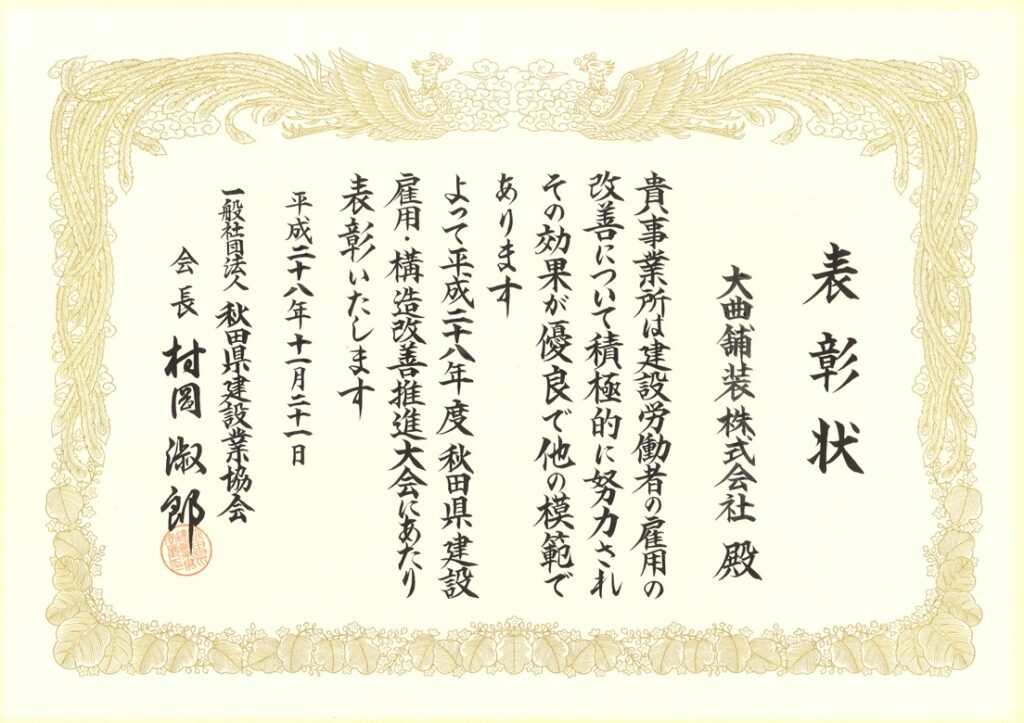 表彰状
大曲舗装株式会社 殿
貴事業所は建設労働者の雇用の
改善について積極的に努力され
その効果が優良で他の模範で
あります
よって平成二十八年度秋田県建設
雇用・構造改善推進大会にあたり
表彰いたします
平成二十八年十一月二十一日
一般社団法人 秋田県建設業協会
会長 村岡淑郎